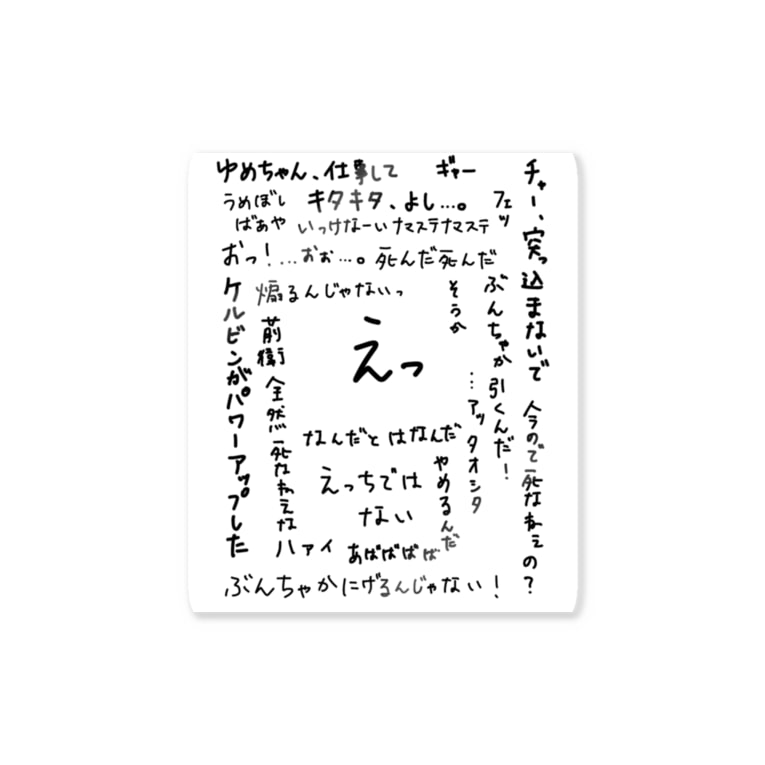 ゆめちゃん、仕事して
ギャー
チャー、突っ込まないで
うめぼし
ばぁや
キタキタ、よし…。
フェッ
いっけなーい
ナマステナマステ
おっ！…おぉ…。
死んだ死んだ
ケルビンがパワーアップした
煽るんじゃないっ
そうか
ぶんちゃか引くんだ！
前衛全然死なねえな
えっ
…アッタオシタ
今ので死なねぇの？
なんだとはなんだ
やめるんだ
えっちでは
ない
ハァイ
あばばばば
ぶんちゃかにげるんじゃない！